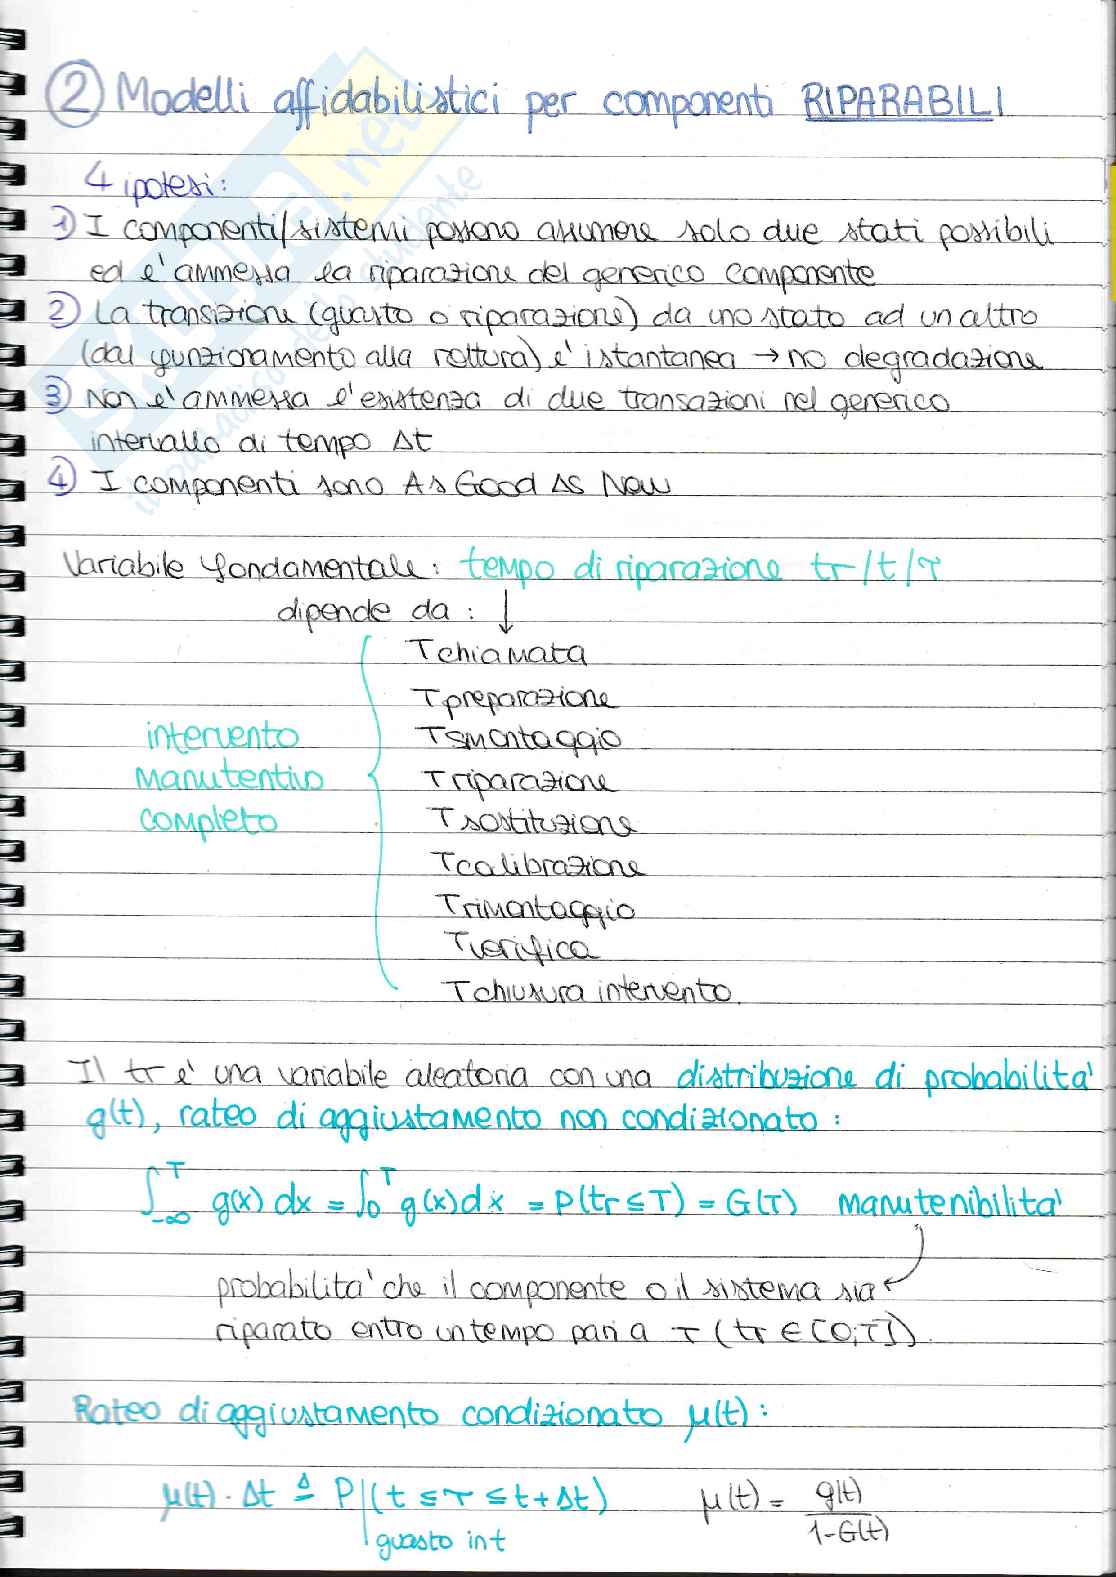 ② Modelli affidabilistici per componenti RIPARABILI
4 ipotesi:
① I componenti/sistemi possono assumere solo due stati possibili
ed e' ammessa la riparazione del generico componente
② La transizione (guasto o riparazione) da uno stato ad un altro
(dal funzionamento alla rottura) e' istantanea → no degradazione
③ Non e' ammessa l'esistenza di due transazioni nel generico
intervallo di tempo Δt
④ I componenti sono As Good As New
Variabile fondamentale: tempo di riparazione tr/t/τ
dipende da: ↓
Tchiamata
Tpreparazione
Tsmontaggio
Triparazione
Tsostituzione
Tcalibrazione
Trimontaggio
Tverifica
Tchiusura intervento.
intervento
manutentivo
completo
Il tr e' una variabile aleatoria con una distribuzione di probabilita'
g(t), rateo di aggiustamento non condizionato:
∫_{-∞}^{T} g(x) dx = ∫_0^T g(x) dx = P(tr ≤ T) = G(T) manutenibilita'
probabilita' che il componente o il sistema sia
riparato entro un tempo pari a T (tr ∈ [0;T]).
Rateo di aggiustamento condizionato μ(t):
μ(t) · Δt ≜ P|(t ≤ τ ≤ t+Δt) μ(t) = g(t) / (1-G(t))
guasto in t